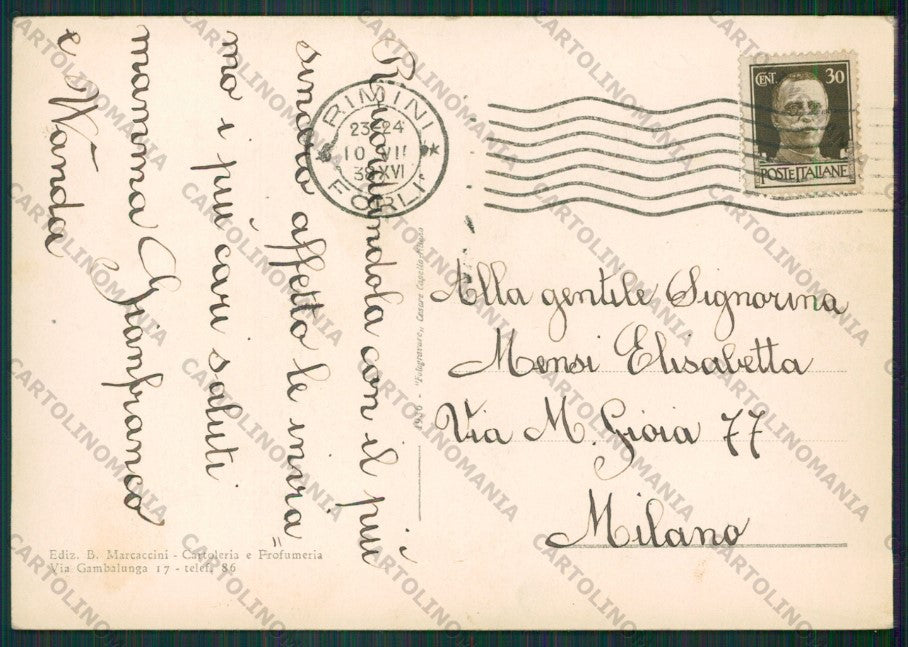 Ricordandola con il più
sincero affetto le invia=
mo i più cari saluti
mamma Gianfranco
e Wanda
RIMINI
23-24
10 VII
38 XVI
FORLI'
CENT. 30
POSTE ITALIANE
Alla gentile Signorina
Mensi Elisabetta
Via M. Gioia 77
Milano
1936 - "Fotogravure" Cesare Capello
Ediz. B. Marcaccini - Cartoleria e Profumeria
Via Gambalunga 17 - telef. 86
CARTOLINOMANIA